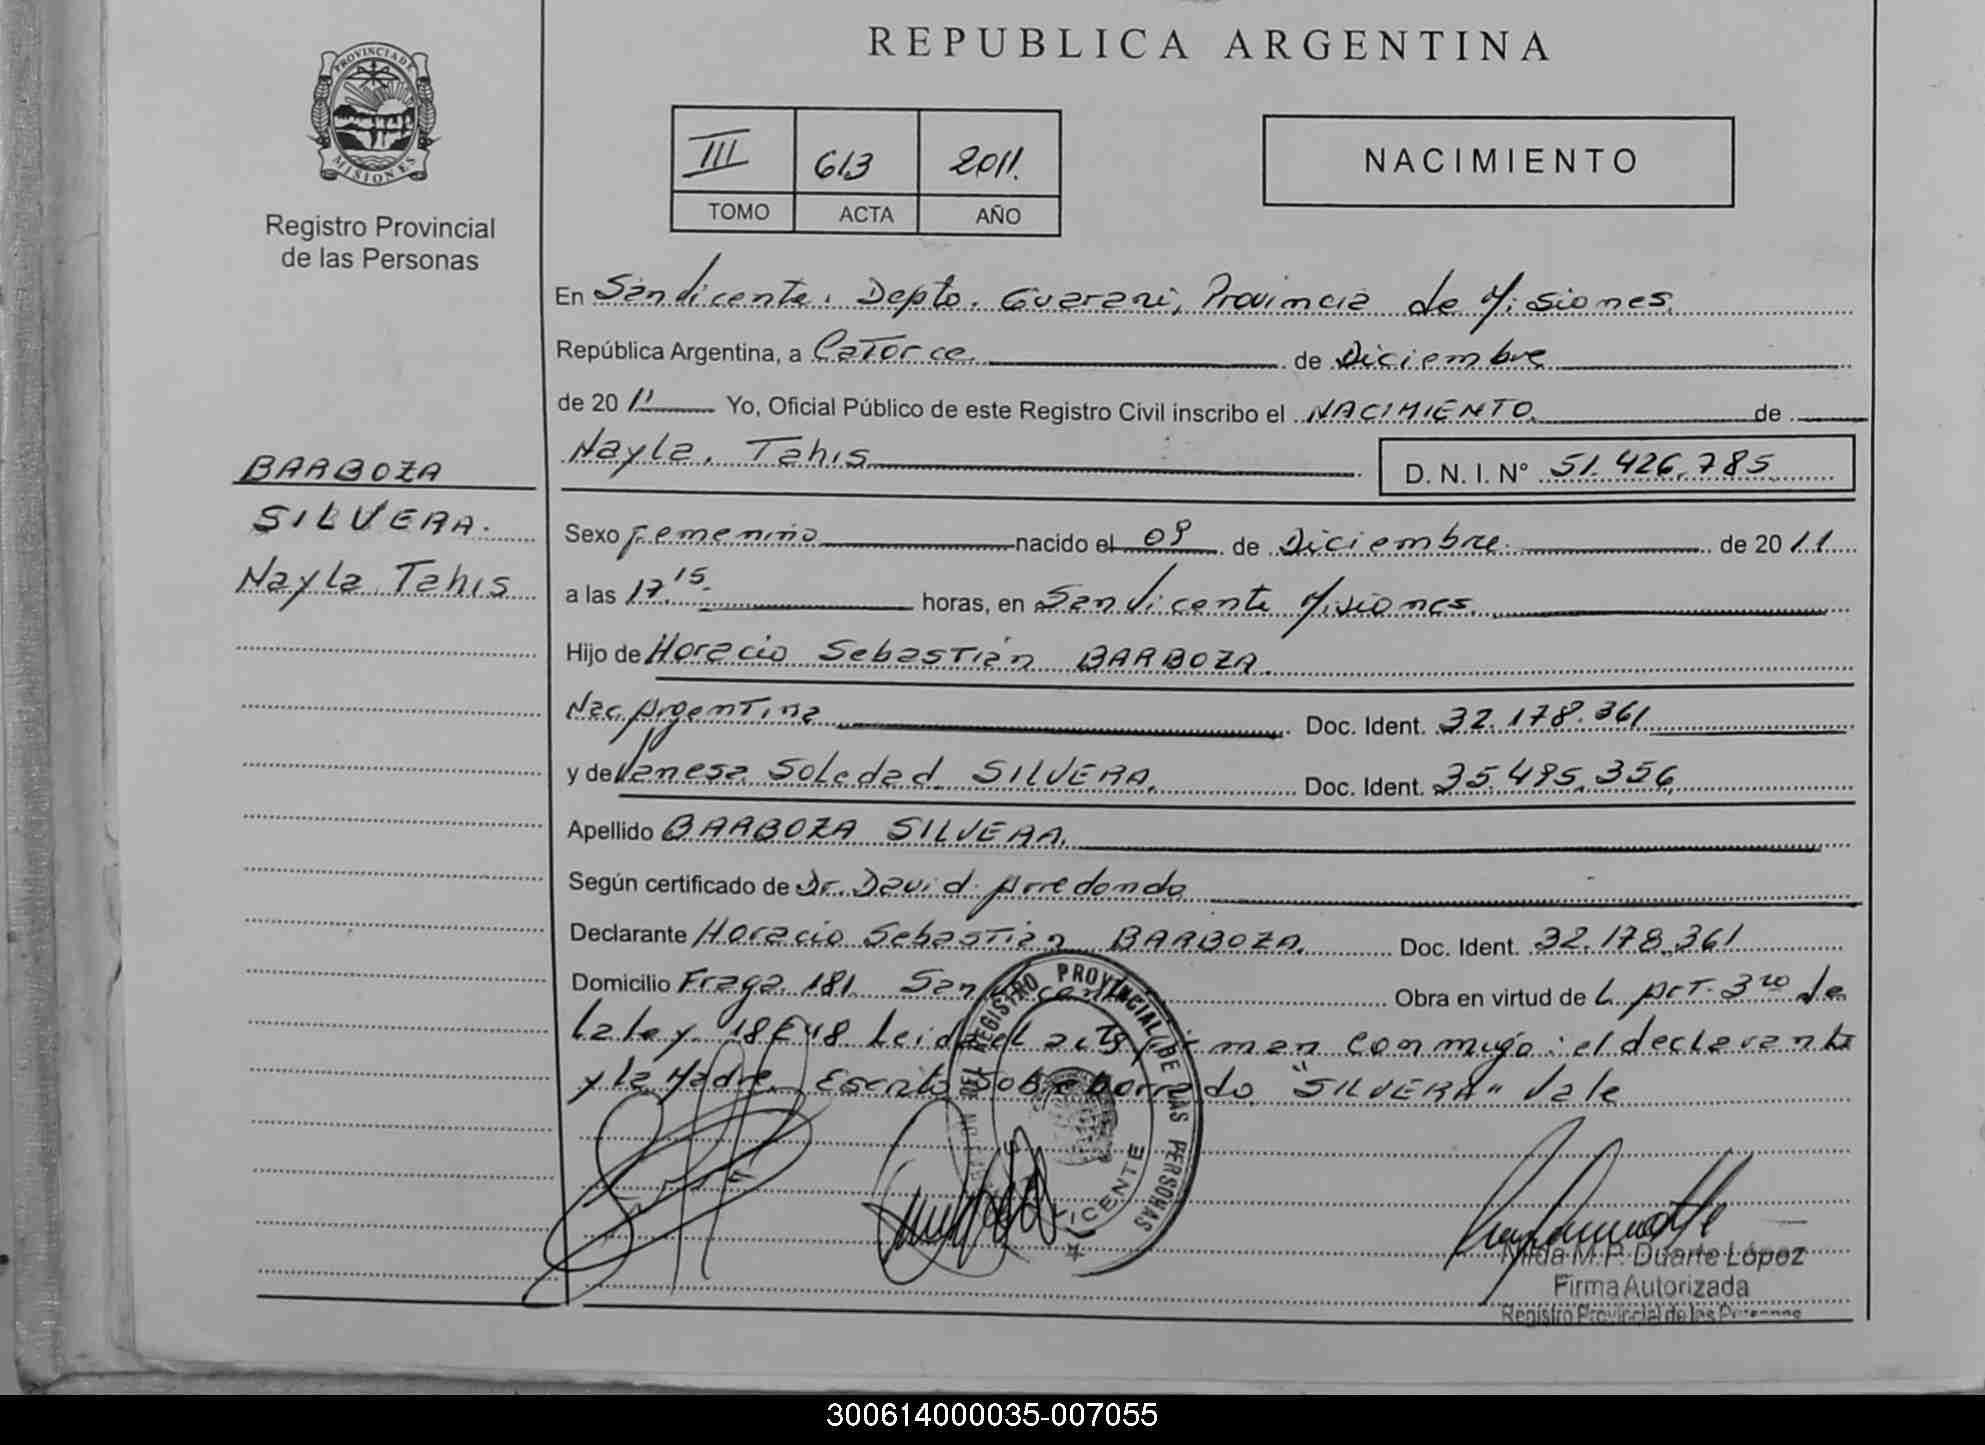 REPUBLICA ARGENTINA
PROVINCIA DE
MISIONES
Registro Provincial
de las Personas
III 613 2011.
TOMO ACTA AÑO
NACIMIENTO
En San Vicente. Depto. Guarani, Provincia de Misiones
República Argentina, a Catorce de Diciembre
de 20 11 Yo, Oficial Público de este Registro Civil inscribo el NACIMIENTO de
Nayla, Tahis D. N. I. N° 51.426.785
BARBOZA
SILVERA.
Nayla Tahis
Sexo Femenino nacido el 09 de Diciembre de 20 11
a las 17.15 horas, en San Vicente Misiones
Hijo de Horacio Sebastián BARBOZA
Nac. Argentina Doc. Ident. 32.178.361
y de Vanesa Soledad SILVERA. Doc. Ident. 35.495.356
Apellido BARBOZA SILVERA.
Según certificado de Dr. David Arredondo
Declarante Horacio Sebastián BARBOZA. Doc. Ident. 32.178.361
Domicilio Fraga 181 San Vicente Obra en virtud de L Art. 3ro de
la ley 18248 Leida el acta firman conmigo: el declarante
y la Madre. Escrito sobre borrado "SILVERA" Vale
REGISTRO PROVINCIAL DE LAS PERSONAS
VICENTE
Nilda M.P. Duarte López
Firma Autorizada
Registro Provincial de las Personas
300614000035-007055